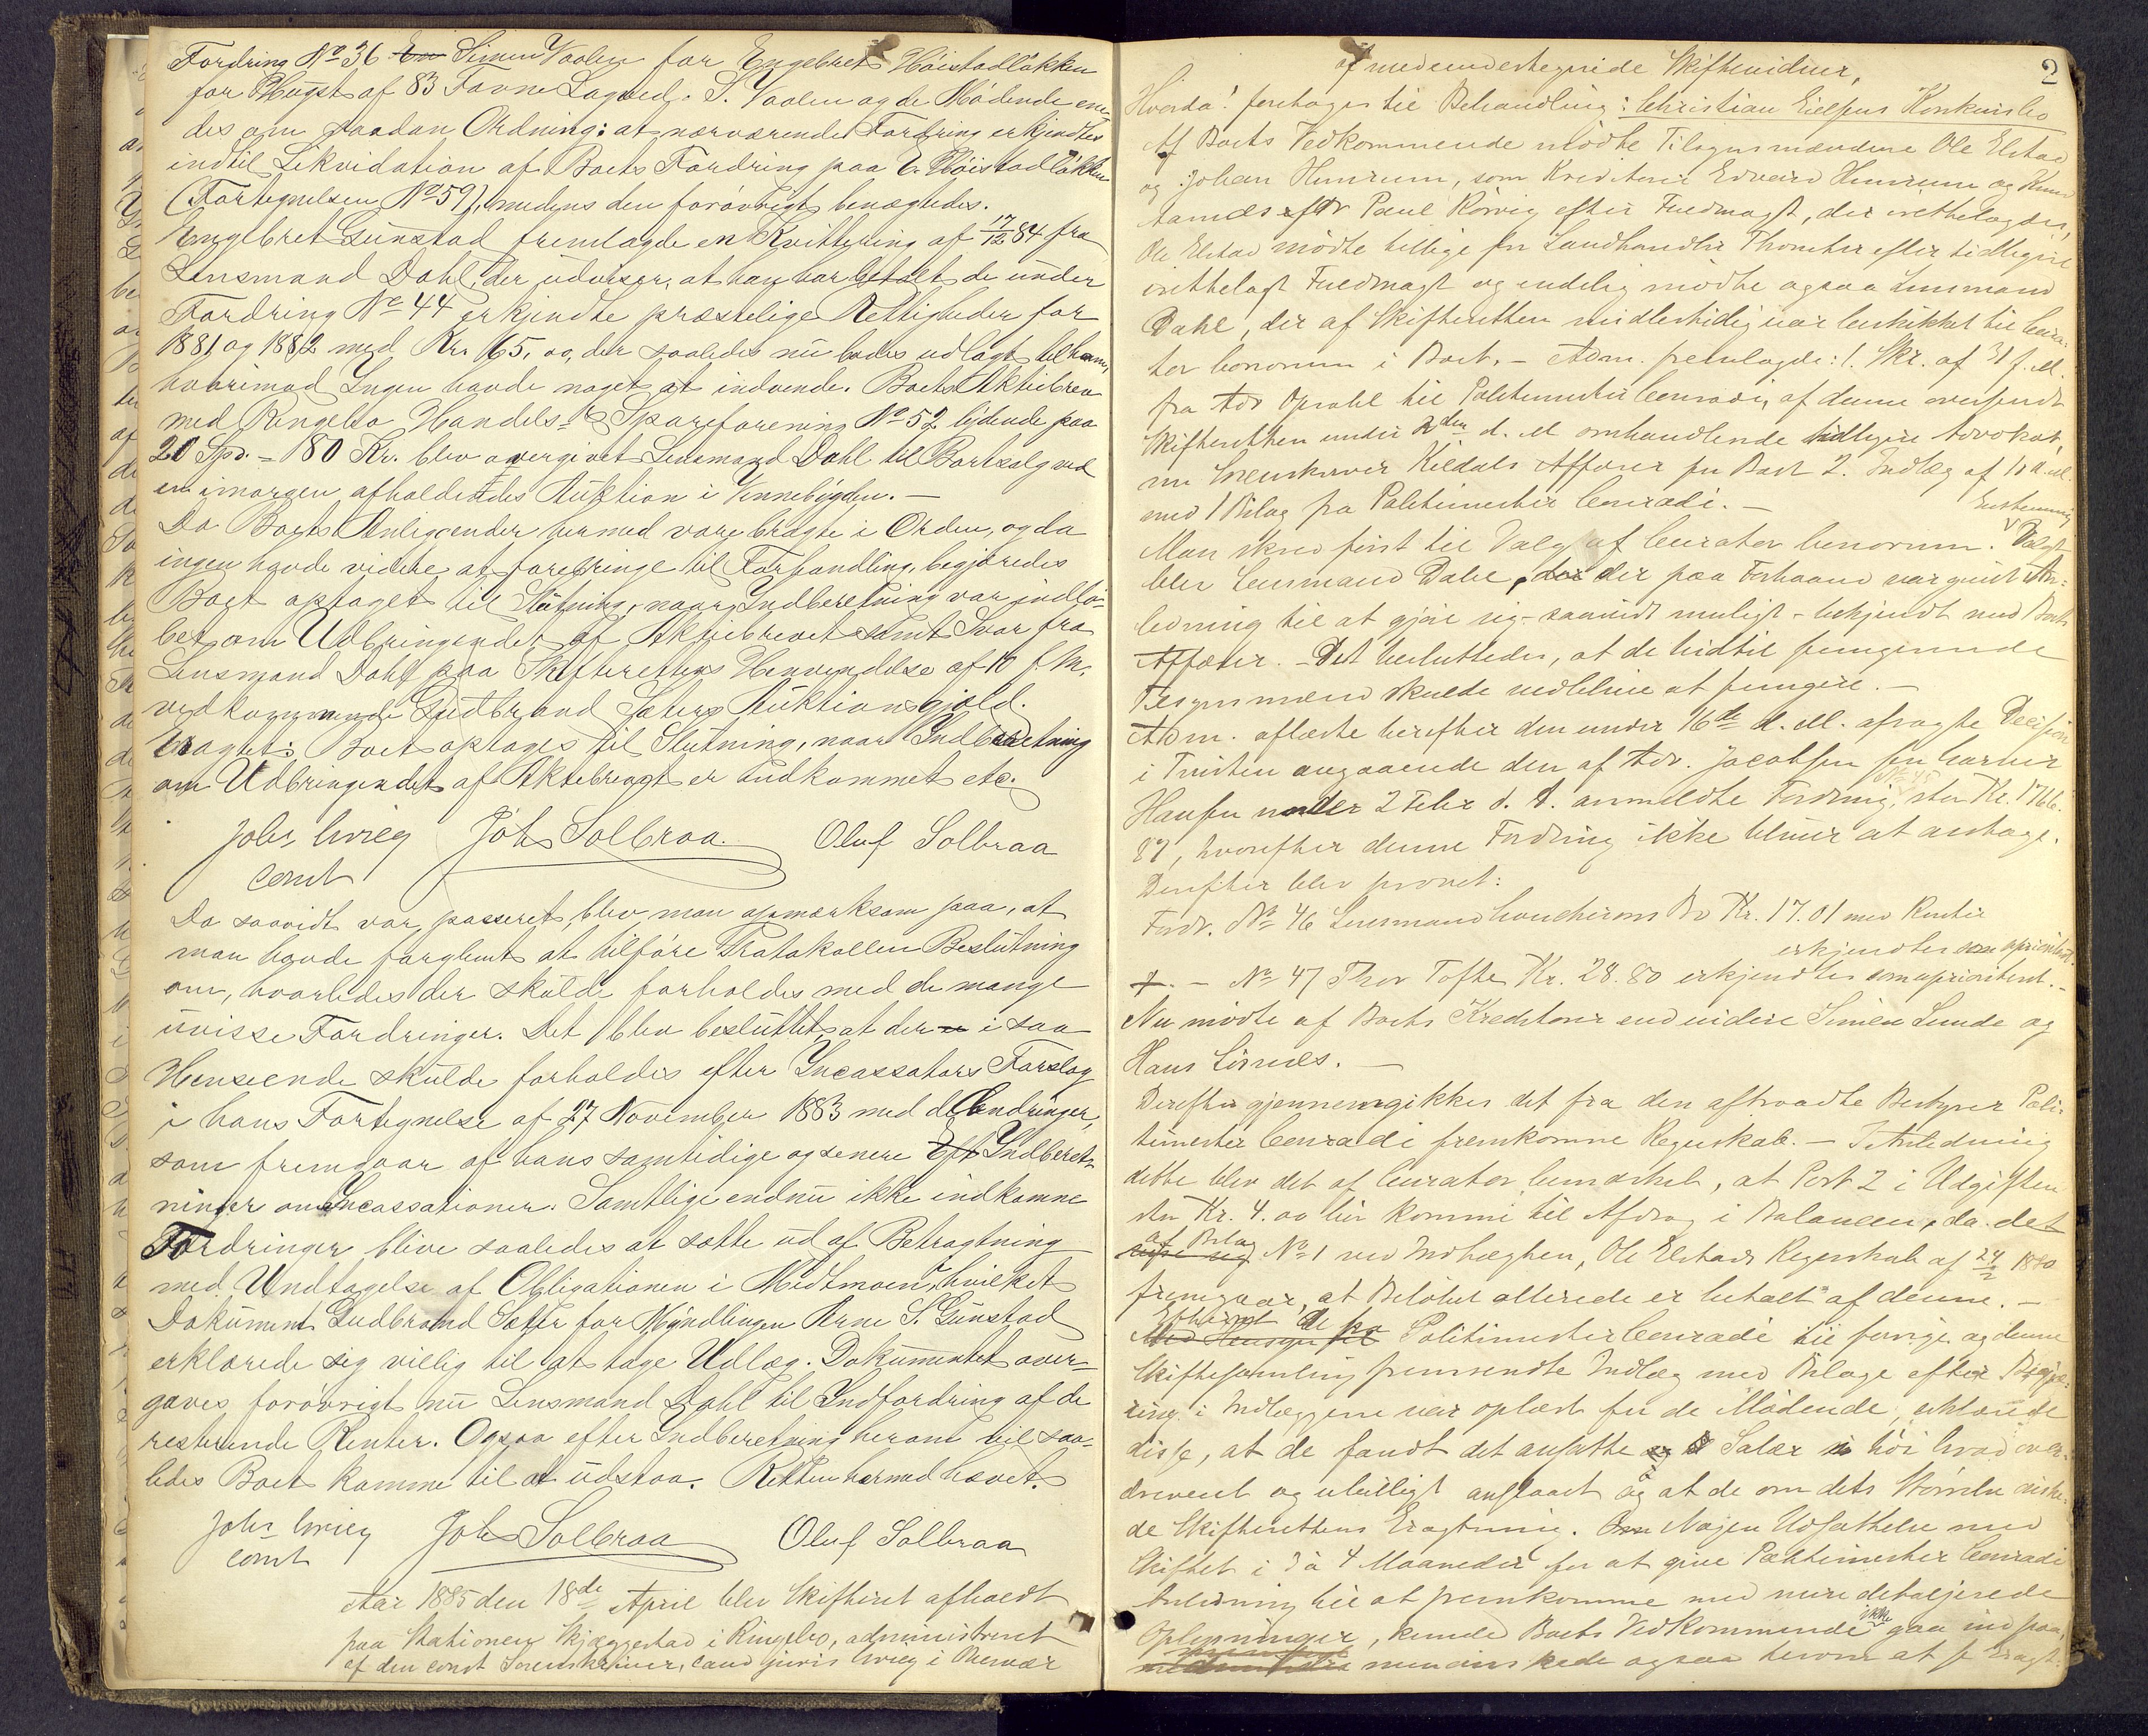 Fordring No 36 Simen Vaalen for Engebret Höistadløkken
for Hugst af 83 Favne Lagved. S. Vaalen og de Mödende ene-
des om saadan Ordning: at nærværende Fordring erkjendtes
indtil Likvidation af Boets Fordring paa E. Höistadløkken
(Fortegnelsen No 59), medens den forövrigt benægtedes.
Engebret Gunstad fremlagde en Kvittering af 17/12 84 fra
Lensmand Dahl, der udviser, at han har betalt de under
Fordring No 44 erkjendte præstelige Rettigheder for
1881 og 1882 med Kr. 65, og der saaledes nu bedes udlagt til ham,
hvorimod Ingen havde noget at indvende. Boets Aktiebrev
med Ringebo Handels- & Spareforening No 52 lydende paa
20 Spd. = 80 Kr. blev overgivet Lensmand Dahl til Bortsalg ved
en imorgen afholdendes Auktion i Vennebygden. —
Da Boets Anliggender hermed vare bragte i Orden, og da
ingen havde videre at forebringe til Forhandling, begjæredes
Boet optaget til Slutning, naar Indberetning var indlö-
bet om Udbringendet af Aktiebrevet samt Svar fra
Lensmand Dahl paa Skifterettens Henvendelse af 10 f. M.
vedkommende Gudbrand Sæters Auktionsgjæld.
Eragtet: Boet optages til Slutning, naar Indberetning
om Udbringendet af Aktiebrevet er indkommet etc.
Johs Krieg Joh Solbraa. Oluf Solbraa
const
Da saavidt var passeret, blev man opmærksom paa, at
man havde forglemt at tilföre Protokollen Beslutning
om, hvorledes der skulde forholdes med de mange
uvisse Fordringer. Det blev besluttet, at der i saa
Henseende skulde forholdes efter Incassators Forslag
i hans Fortegnelse af 27 November 1883 med de Ændringer,
som fremgaar af hans samtidige og senere Indberet-
ninger om Incassationen. Samtlige endnu ikke indkomne
Fordringer blive saaledes at sætte ud af Betragtning
med Undtagelse af Obligationen i Midtmoen, hvilket
Dokument Gudbrand Sæter for Myndlingen Arne S. Gunstad
erklærede sig villig til at tage Udlæg. Dokumentet over-
gaves forövrigt nu Lensmand Dahl til Indfordring af de
resterende Renter. Ogsaa efter Indberetning herom vil saa-
ledes Boet komme til at udstaa. Retten hermed hævet.
Johs Krieg Joh Solbraa Oluf Solbraa
const
Aar 1885 den 18de April blev Skifteret afholdt
paa Stationen Skjæggestad i Ringebo, administreret
af den const Sorenskriver, cand juris Krieg i Overvær
2
af medundertegnede Skiftevidner,
Hvorda! foretages til Behandling: Christian Eielsens Konkursbo
Af Boets Vedkommende mödte Tilsynsmændene Ole Elstad
og Johan Hunrum, som Kreditorer Edvard Hunrum og
for Paul Rörvig efter Fuldmagt, der irettelagdes,
Ole Elstad mödte tillige for Landhandler Thoneter efter tidligere
irettelagt Fuldmagt og endelig mödte ogsaa Lensmand
Dahl, der af Skifteretten midlertidig var beskikket til Cura-
tor bonorum i Boet. — Adm. fremlagde: 1. Skr. af 31 f. M.
fra Adv Opsahl til Politimester Conradi, af denne oversendt
Skifteretten under 2den d. M omhandlende tidligere Advokat,
nu Sorenskriver Kildals Affærer for Boet 2. Indlæg af d. M.
med 1 Bilag fra Politimester Conradi. —
Man skred först til Valg af Curator bonorum. Enstemmig Valgt
blev Lensmand Dahl, der paa Forhaand var givet An-
ledning til at gjöre sig - saavidt muligt - bekjendt med Boets
Affærer. — Det besluttedes, at de hidtil fungerende
Tilsynsmænd skulde vedblive at fungere. —
Adm. oplæste herefter den under 16de d. M. afsagte Decision
i Tvisten angaaende den af Adv. Jacobsen for
Hansen under 2 Febr d. A. anmeldte Fordring, No 45 stor Kr. 1766.
87, hvorefter denne Fordring ikke bliver at antage.
Derefter blev prövet:
Fordr. No 46 Lensmand Bo Kr. 17.01 med Renter
erkjendtes som uprioriteret.
— No 47 Thor Tofte Kr. 28.80 erkjendtes som uprioriteret. —
Nu mödte af Boets Kreditorer endvidere Simen Lunde og
Hans Lörnæs. —
Derefter gjennemgikkes det fra den aftraadte Bestyrer Poli-
timester Conradi fremkomne Regnskab. — I Anledning
dette blev det af Curator bemærket, at Post 2 i Udgiften
stor Kr. 4.00 bör komme til Afdrag i Balancen, da det
af Bilag No 1 ved Indtægten, Ole Elstads Regnskab af 24/2 1880
fremgaar, at Belöbet allerede er betalt af denne. —
Efterat de fra Politimester Conradi til forrige og denne
Skiftesamling fremsendte Indlæg med Bilage efter Begjæ-
ring i Indlæggene var oplæst for de Mödende, erklærede
disse, at de fandt det ansatte Salær i höi Grad over-
drevent og ubilligt ansaaet og at de om dets Störrelse æske-
de Skifterettens Eragtning. Nogen Udsættelse med
Skiftet i 3 à 4 Maaneder for at give Politimester Conradi
Anledning til at fremkomme med mere detaljerede
Oplysninger, kunde Boets Vedkommende ikke gaa ind paa,
men önskede ogsaa herom at se Eragt-